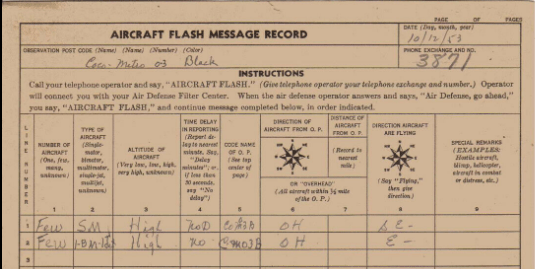 PAGE OF PAGES
AIRCRAFT FLASH MESSAGE RECORD
DATE (Day, month, year)
10/12/53
OBSERVATION POST CODE (Name) (Name) (Number) (Color)
Coca-Metro 03 Black
PHONE EXCHANGE AND NO.
3871
INSTRUCTIONS
Call your telephone operator and say, "AIRCRAFT FLASH." (Give telephone operator your telephone exchange and number.) Operator
will connect you with your Air Defense Filter Center. When the air defense operator answers and says, "Air Defense, go ahead,"
you say, "AIRCRAFT FLASH," and continue message completed below, in order indicated.
LINE NUMBER
NUMBER OF AIRCRAFT (One, few, many, unknown)
1
TYPE OF AIRCRAFT (Single-motor, bimotor, multimotor, single-jet, multijet, unknown)
2
ALTITUDE OF AIRCRAFT (Very low, low, high, very high, unknown)
3
TIME DELAY IN REPORTING (Report delay to nearest minute. Say, "Delay minutes"; or, if less than 30 seconds, say "No delay")
4
CODE NAME OF O. P. (See top order of page)
5
DIRECTION OF AIRCRAFT FROM O. P.
OR "OVERHEAD"
(All aircraft within ½ mile of the O. P.)
6
DISTANCE OF AIRCRAFT FROM O. P.
(Record to nearest mile)
7
DIRECTION AIRCRAFT ARE FLYING
(Say "Flying," then give direction)
8
SPECIAL REMARKS (EXAMPLES: Hostile aircraft, blimp, helicopter, aircraft in combat or distress, etc.)
9
1 Few SM High NoD OH SE-
2 Few High No OH E-
3